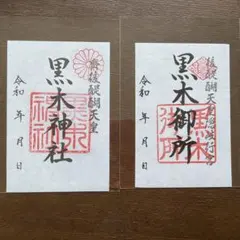 奉拝後醍醐天皇
黒木神社
令和 年 月 日
後醍醐天皇隠岐行宮
黒木御所
令和 年 月 日
黒木御所